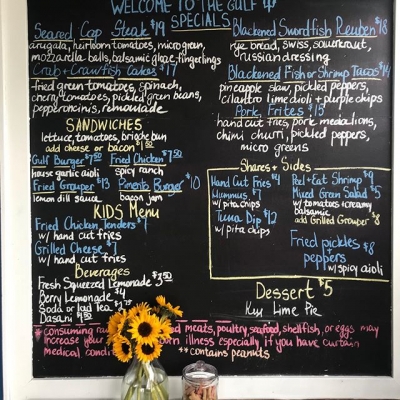 WELCOME TO THE GULF
SPECIALS
Seared Cap Steak $19
arugala, heirloom tomatoes, micro green,
mozzarella balls, balsamic glaze, fingerlings
Crab + Crawfish Cakes $17
fried green tomatoes, spinach,
cherry tomatoes, pickled green beans,
pepperoncinis, remoulade
SANDWICHES
lettuce, tomatoes, brioche bun
add cheese or bacon $1.50
Gulf Burger $7.50 Fried Chicken $7.50
house garlic aioli spicy ranch
Fried Grouper $13 Pimento Burger $10
lemon dill sauce bacon jam
KIDS Menu
Fried Chicken Tenders
w/ hand cut fries
Grilled Cheese
w/ hand cut fries
Beverages
Fresh Squeezed Lemonade $3.50
Berry Lemonade $4
Soda or Iced Tea
Dasani
Blackened Swordfish Reuben $18
rye bread, swiss, sauerkraut,
russian dressing
Blackened Fish or Shrimp Tacos $14
pineapple slaw, pickled peppers,
cilantro lime aioli + purple chips
Pork Frites $15
hand cut fries, pork medallions,
chimi churri, pickled peppers,
micro greens
Shares + Sides
Hand Cut Fries $4
Hummus
w/ pita chips
Tuna Dip $12
w/ pita chips
Peel + Eat Shrimp $9
Mixed Green Salad $5
w/ tomatoes + creamy
balsamic
add Grilled Grouper $8
Fried pickles $8
+ peppers
w/ spicy aioli
Dessert $5
Key Lime Pie
* consuming meats, poultry, seafood, shellfish, or eggs may
increase your illness especially if you have certain
medical
** contains peanuts